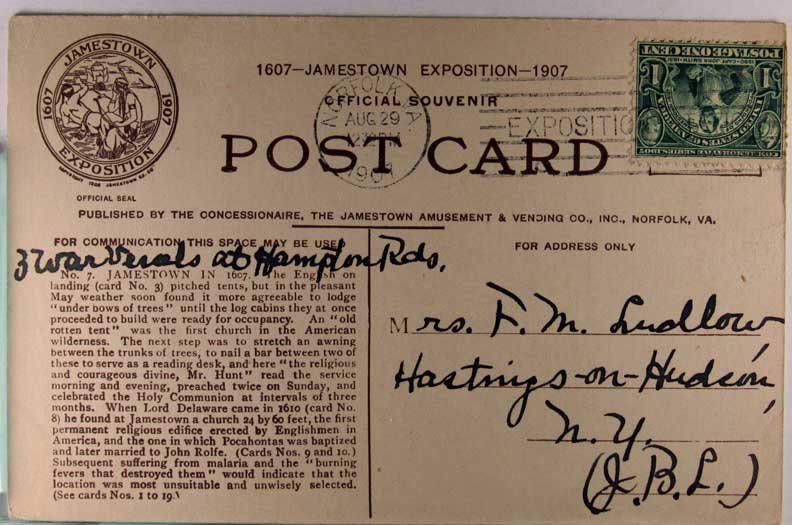 JAMESTOWN
1607 1907
EXPOSITION
COPYRIGHT 1906 JAMESTOWN EX. CO.
OFFICIAL SEAL
1607—JAMESTOWN EXPOSITION—1907
OFFICIAL SOUVENIR
POST CARD
NORFOLK VA.
AUG 29
1907
EXPOSITION
POSTAGE ONE CENT
1580 · CAPT. JOHN SMITH · 1631
1 1
UNITED STATES OF AMERICA
SERIES 1907
PUBLISHED BY THE CONCESSIONAIRE, THE JAMESTOWN AMUSEMENT & VENDING CO., INC., NORFOLK, VA.
FOR COMMUNICATION THIS SPACE MAY BE USED
3 War Vessals at Hampton Rds.
No. 7. JAMESTOWN IN 1607. The English on
landing (card No. 3) pitched tents, but in the pleasant
May weather soon found it more agreeable to lodge
"under bows of trees" until the log cabins they at once
proceeded to build were ready for occupancy. An "old
rotten tent" was the first church in the American
wilderness. The next step was to stretch an awning
between the trunks of trees, to nail a bar between two of
these to serve as a reading desk, and here "the religious
and courageous divine, Mr. Hunt" read the service
morning and evening, preached twice on Sunday, and
celebrated the Holy Communion at intervals of three
months. When Lord Delaware came in 1610 (card No.
8) he found at Jamestown a church 24 by 60 feet, the first
permanent religious edifice erected by Englishmen in
America, and the one in which Pocahontas was baptized
and later married to John Rolfe. (Cards Nos. 9 and 10.)
Subsequent suffering from malaria and the "burning
fevers that destroyed them" would indicate that the
location was most unsuitable and unwisely selected.
(See cards Nos. 1 to 19.)
FOR ADDRESS ONLY
Mrs. F. M. Ludlow,
Hastings-on-Hudson,
N.Y.
(J.B.L.)